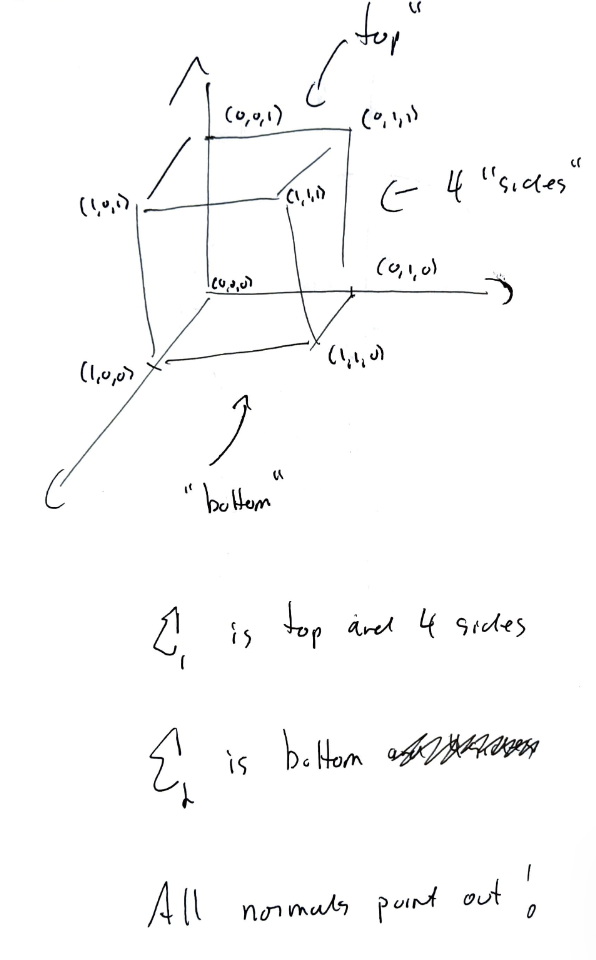 "top"
(0,0,1) (0,1,1)
(1,0,1) (1,1,1) 4 "sides"
(0,0,0) (0,1,0)
(1,0,0) (1,1,0)
"bottom"
Σ₁ is top and 4 sides
Σ₂ is bottom
All normals point out!